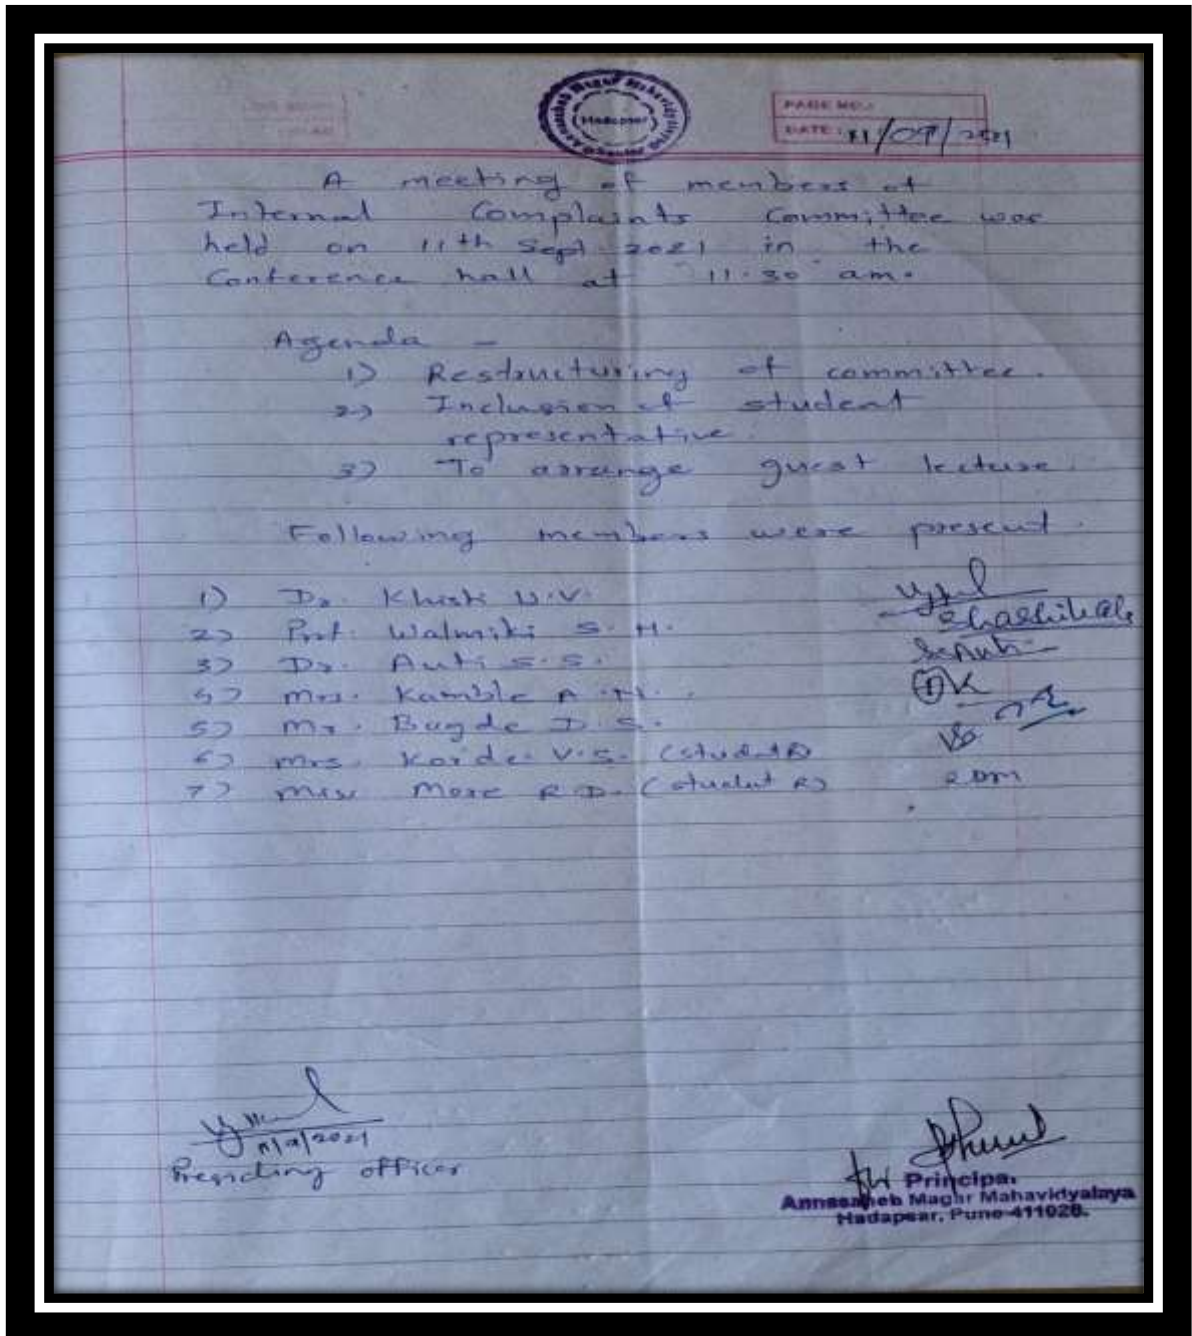 Annasaheb Magar Mahavidyalaya
Hadapsar
PAGE NO.:
DATE: 11/09/2021
A meeting of members of
Internal Complaints Committee was
held on 11th Sept. 2021 in the
Conference hall at 11.30 am.
Agenda -
1) Restructuring of committee.
2) Inclusion of student
representative.
3) To arrange guest lecture.
Following members were present.
1) Dr. Khisti U.V.
2) Prof. Walmiki S. H.
3) Dr. Auti S.S.
4) Mrs. Kamble A.M.
5) Mr. Bugde D.S.
6) Mrs. Korde V.S. (student R)
7) Miss More R.D. (student R)
11/9/2021
Presiding officer
for Principal
Annasaheb Magar Mahavidyalaya
Hadapsar, Pune-411028.